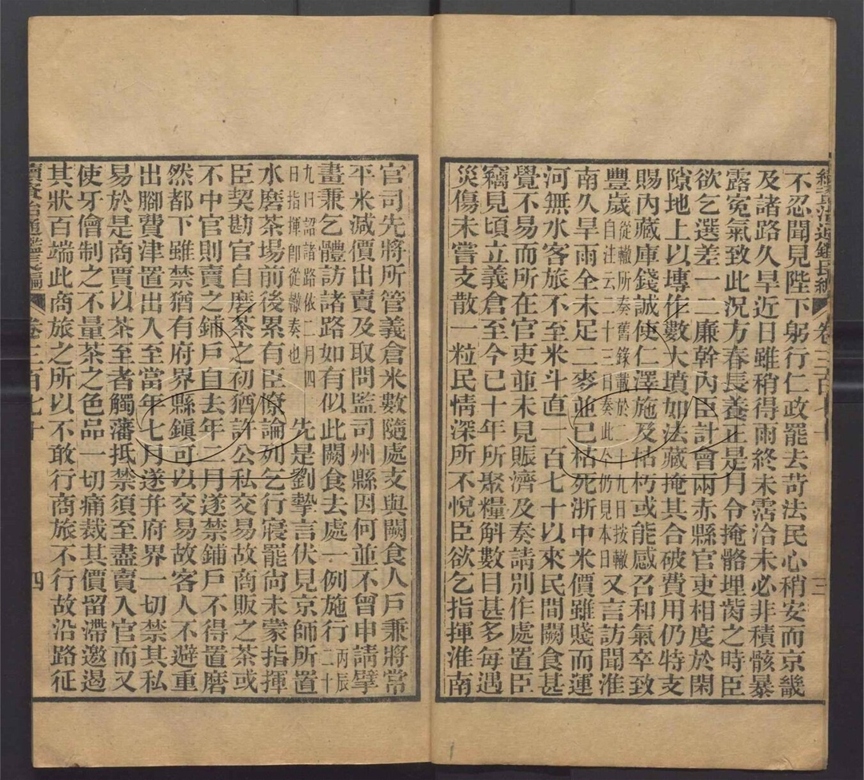 續資治通鑑長編　卷三百七十　三
不忍聞見陛下躬行仁政罷去苛法民心稍安而京畿
及諸路久旱近日雖稍得雨終未霑洽未必非積骸暴
露寃氣致此況方春長養正是月令掩骼埋胔之時臣
欲乞選差一二廉幹內臣計會兩赤縣官吏相度於閑
隙地上以塼作數大墳如法藏掩其合破費用仍特支
賜內藏庫錢誠使仁澤施及枯朽或能感召和氣卒致
豐歲自注云二十三日奏此今仍見本日從轍所奏舊錄載於二十九日按轍又言訪聞淮
南久旱雨全未足二麥並已枯死浙中米價雖賤而運
河無水客旅不至米斗直一百七十以來民間闕食甚
覺不易而所在官吏並未見賑濟及奏請別作處置臣
竊見頃立義倉至今已十年所聚糧斛數目甚多每遇
災傷未嘗支散一粒民情深所不悅臣欲乞指揮淮南
官司先將所管義倉米數隨處支與闕食人戶兼將常
平米減價出賣及取問監司州縣因何並不曾申請擘
畫兼乞體訪諸路如有似此闕食去處一例施行丙辰二十
九日詔諸路依二月四日指揮卽從轍奏也　先是劉摯言伏見京師所置
水磨茶場前後累有臣僚論列乞行寢罷尙未蒙指揮
臣契勘官自磨茶之初猶許公私交易故商販之茶或
不中官則賣之鋪戶自去年二月遂禁鋪戶不得置磨
然都下雖禁猶有府界縣鎭可以交易故客人不避重
出腳費津置出入至當年七月遂并府界一切禁其私
易於是商賈以茶至者觸藩抵禁須至盡賣入官而又
使牙儈制之不量茶之色品一切痛裁其價留滯邀遏
其狀百端此商旅之所以不敢行商旅不行故沿路征
續資治通鑑長編　卷三百七十　四